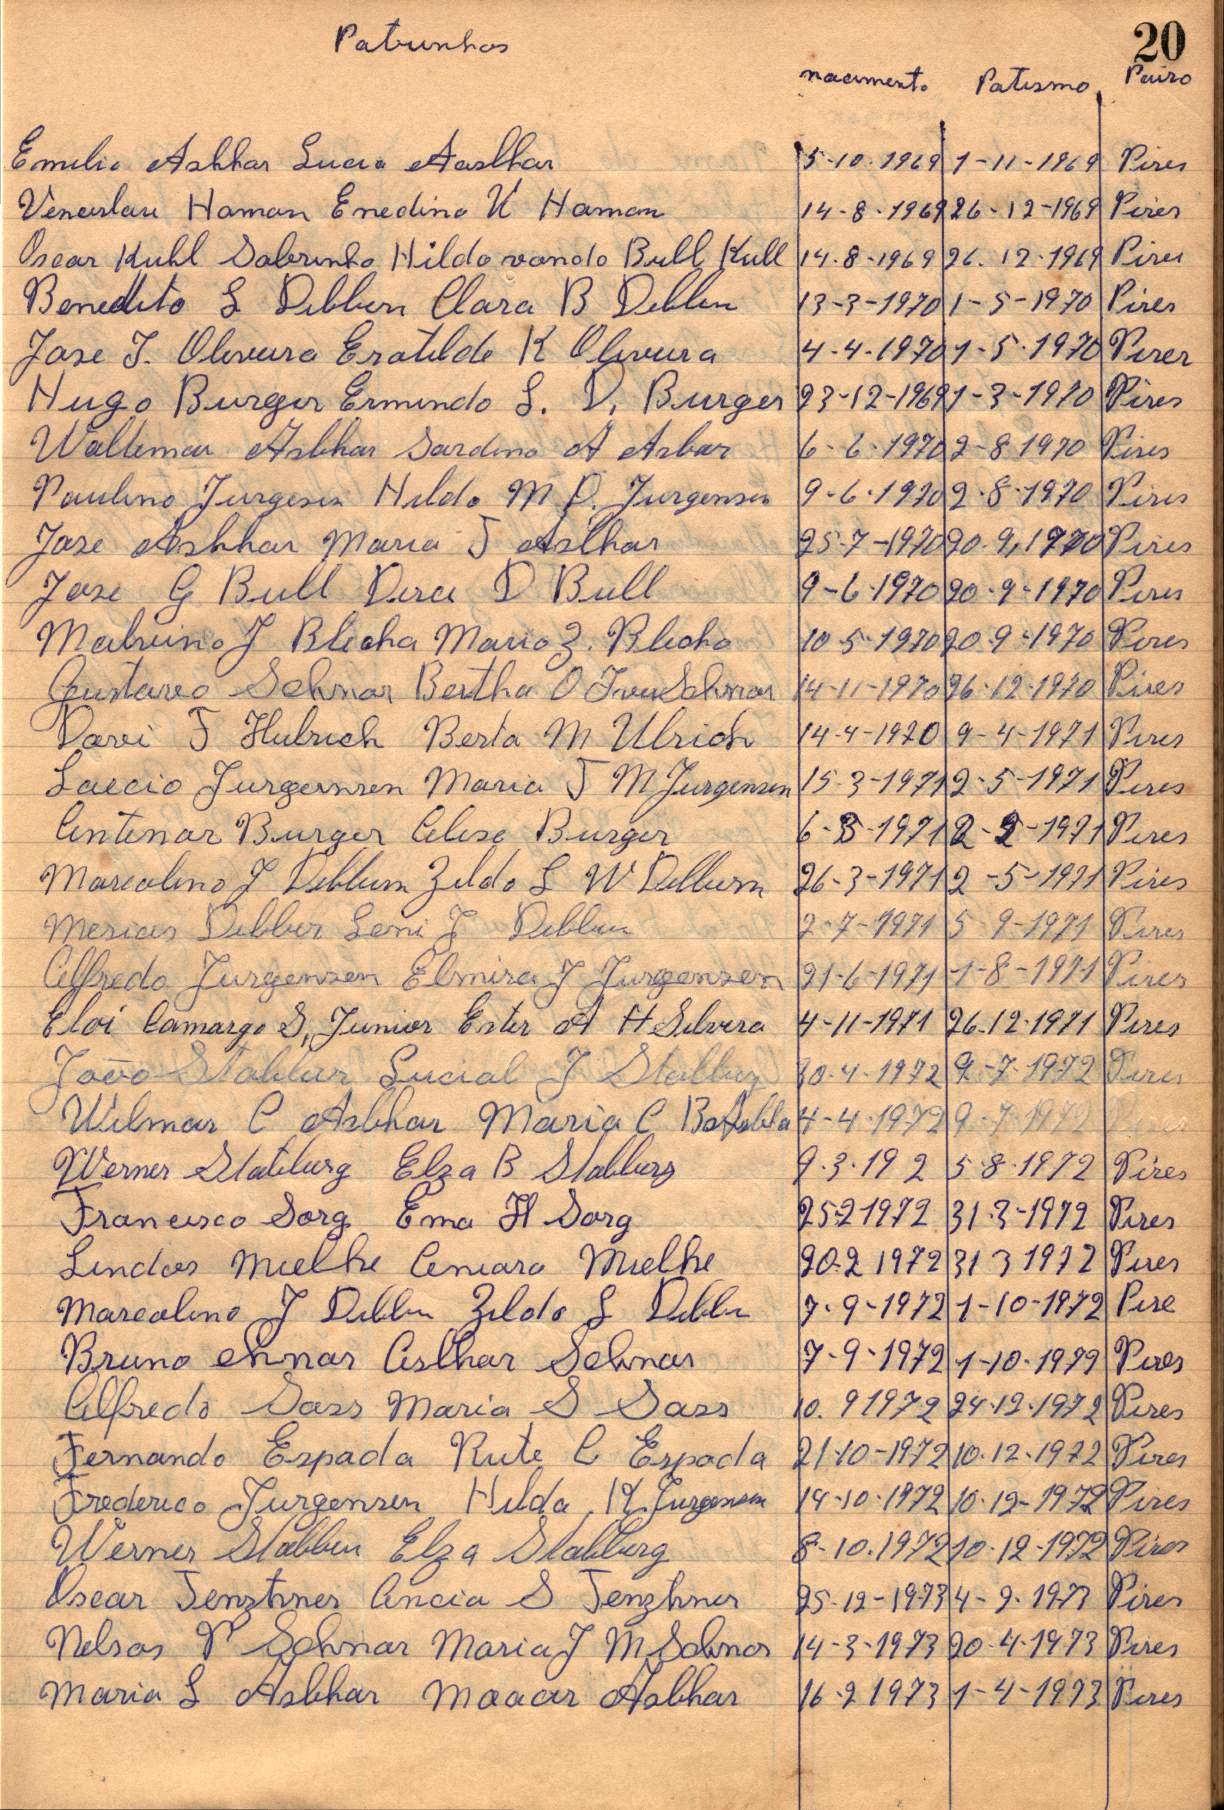 20
Patrunhos
nacimento Patismo Pairo
Emilio Ashhar Lucia Aaslhar 5-10-1969 1-11-1969 Pires
Venceslau Haman Enedino K Haman 14-8-1969 26-12-1969 Pires
Oscar Kuhl Sobrinho Hildo vando Bull Kull 14-8-1969 26-12-1969 Pires
Benedito L Dibbern Clara B Dibbern 13-3-1970 1-5-1970 Pires
Jose J. Oliveira Esatilde K Oliveira 4-4-1970 1-5-1970 Pirer
Hugo Burger Ermindo L. D. Burger 23-12-1969 1-3-1970 Pires
Waldemar Asbhar Sardino A Asbar 6-6-1970 2-8-1970 Pires
Paulino Jurgesen Hildo M D. Jurgensen 9-6-1970 2-8-1970 Pires
Jose Ashhar Maria J Aslhar 25-7-1970 20-9,1970 Pires
Jose G Bull Dirce D Bull 9-6-1970 20-9-1970 Pires
J Blecha Maria Z. Blecha 10-5-1970 20-9-1970 Pires
Gustavo Sehnor Bertha O Sehnor 14-11-1970 26-12-1970 Pires
Davi J Hulrich Berta M Ulrich 14-4-1970 9-4-1971 Pires
Laecio Jurgernsen Maria J M Jurgensen 15-3-1971 2-5-1971 Pires
Antenor Burger Alise Burger 6-3-1971 2-2-1971 Pires
Marcolino J Dibbern Zildo L W Dibbern 26-3-1971 2-5-1971 Pires
Mesias Dibber Leni J Dibbern 2-7-1971 5 9-1971 Pires
Alfredo Jurgensen Elmira J Jurgensen 21-6-1971 1-8-1971 Pires
Eloi Camargo S, Junior Ester A H Silvera 4-11-1971 26-12-1971 Pires
João Stahlbur Lucial J Stalburg 30-4-1972 9-7-1972 Pires
Wilmar C Asbhar Maria C 4-4-1972 9-7-1972
Werner Statlburg Elza B Stalburg 9-3-19 2 5-8-1972 Pires
Francisco Sorg Ema H Sorg 25-2 1972 31-3-1972 Pires
Lindas Mielhe Aniara Mielhe 20-2 1972 31 3 1972 Pires
Marcolino J Dibbern Zildo L Dibbe 7-9-1972 1-10-1972 Pire
Bruno ehnar Aslhar Sehnar 7-9-1972 1-10-1972 Pires
Alfredo Sass Maria S Sass 10. 9 1972 24-12-1972 Pires
Fernando Espada Rute C Espada 21-10-1972 10-12-1972 Pires
Frederico Jurgensen Hilda H Jurgensen 14-10-1972 10-12-1972 Pires
Werner Stabbun Elza Stahlburg 8-10-1972 10-12-1972 Pires
Oscar Tenzhner Ancia S Tenzhner 25-12-1973 4-2-1973 Pires
Nelsos P Sehnar Maria J M Sehnor 14-3-1973 20-4-1973 Pires
Maria L Asbhar Moacir Asbhar 16-2 1973 1-4-1973 Pires